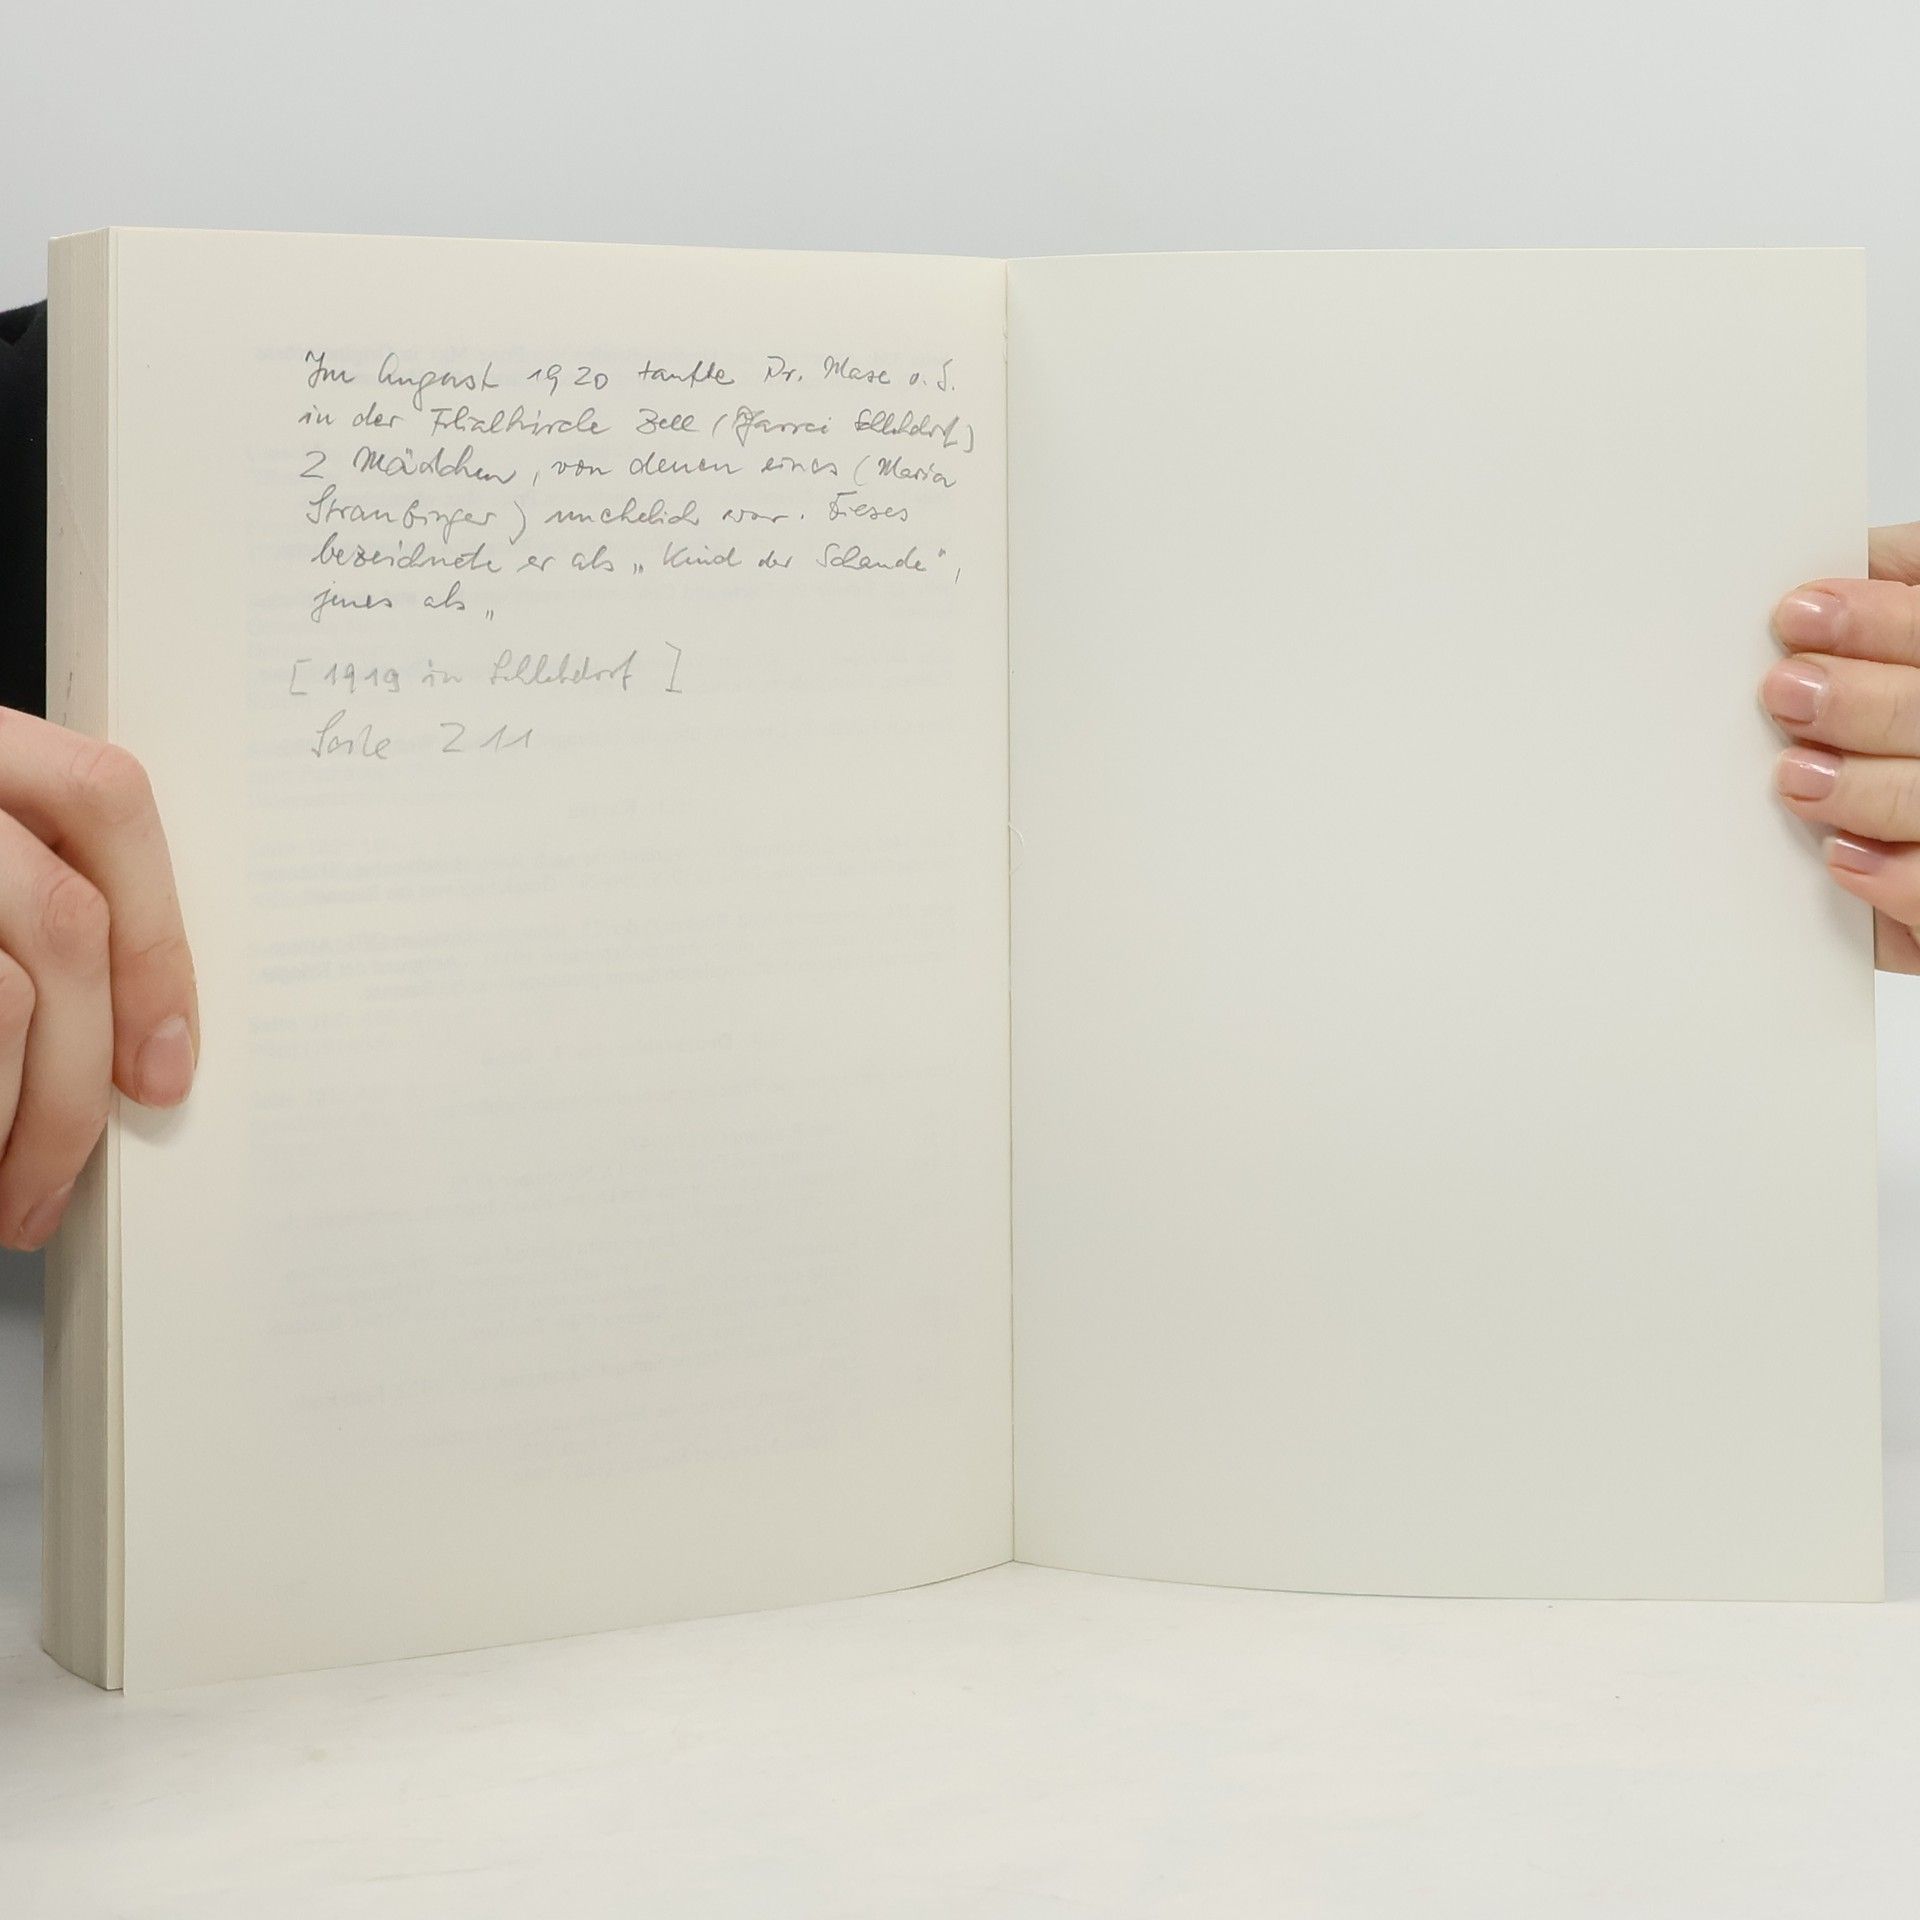 Im August 1920 taufte Dr. Mase o. S.
in der Filialkirche Zell (Pfarrei Schlehdorf)
2 Mädchen, von denen eines (Maria
Straubinger) unehelich war. Dieses
bezeichnete er als „Kind der Schande",
jenes als „
[1919 in Schlehdorf]
Seite 211